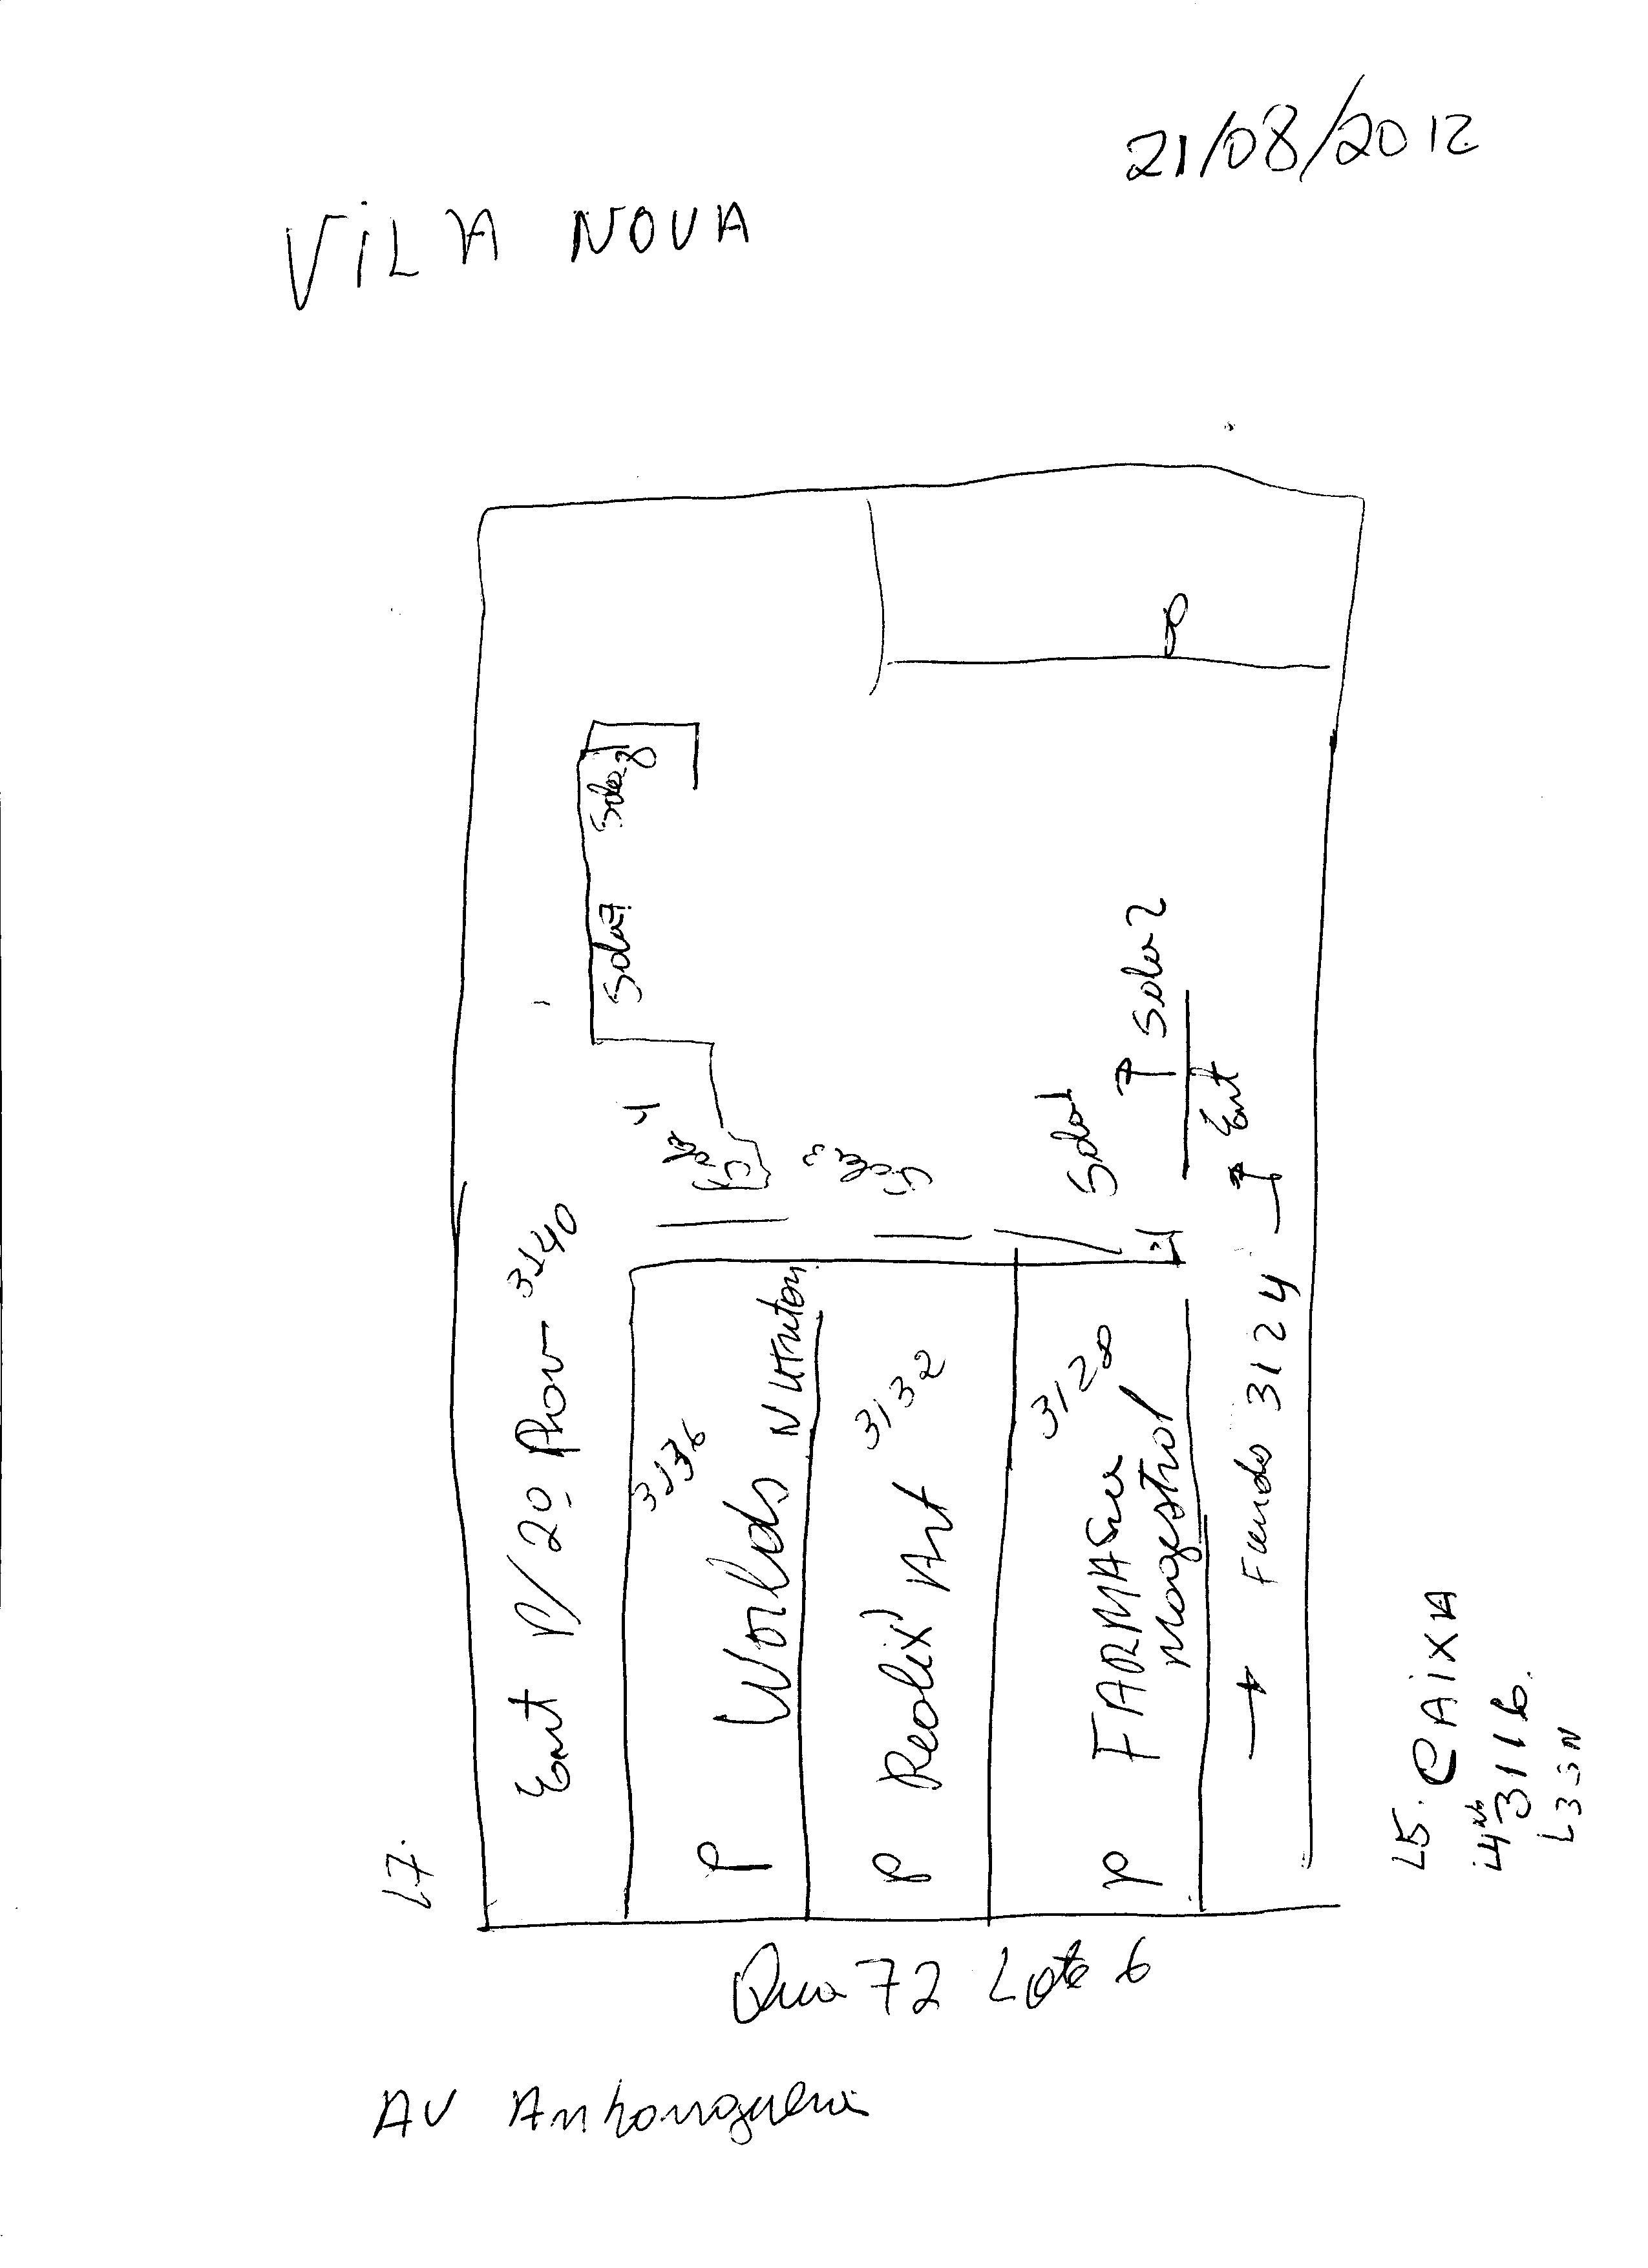 21/08/2012
VILA NOVA
Sala 8
Sala 7
Sala 2
4
Sala
Sala 3
Sala 1
Ent
Ent P/ 2º Pav 3140
3136
Worlds Nutrition
3132
Realix Art
3128
FARMácia
magestral
Fundo 3124
P
P
P
L7.
L5. CAIXA
L4 3116.
L3 SN
Qua 72 Lote 6
AV Anhanguera